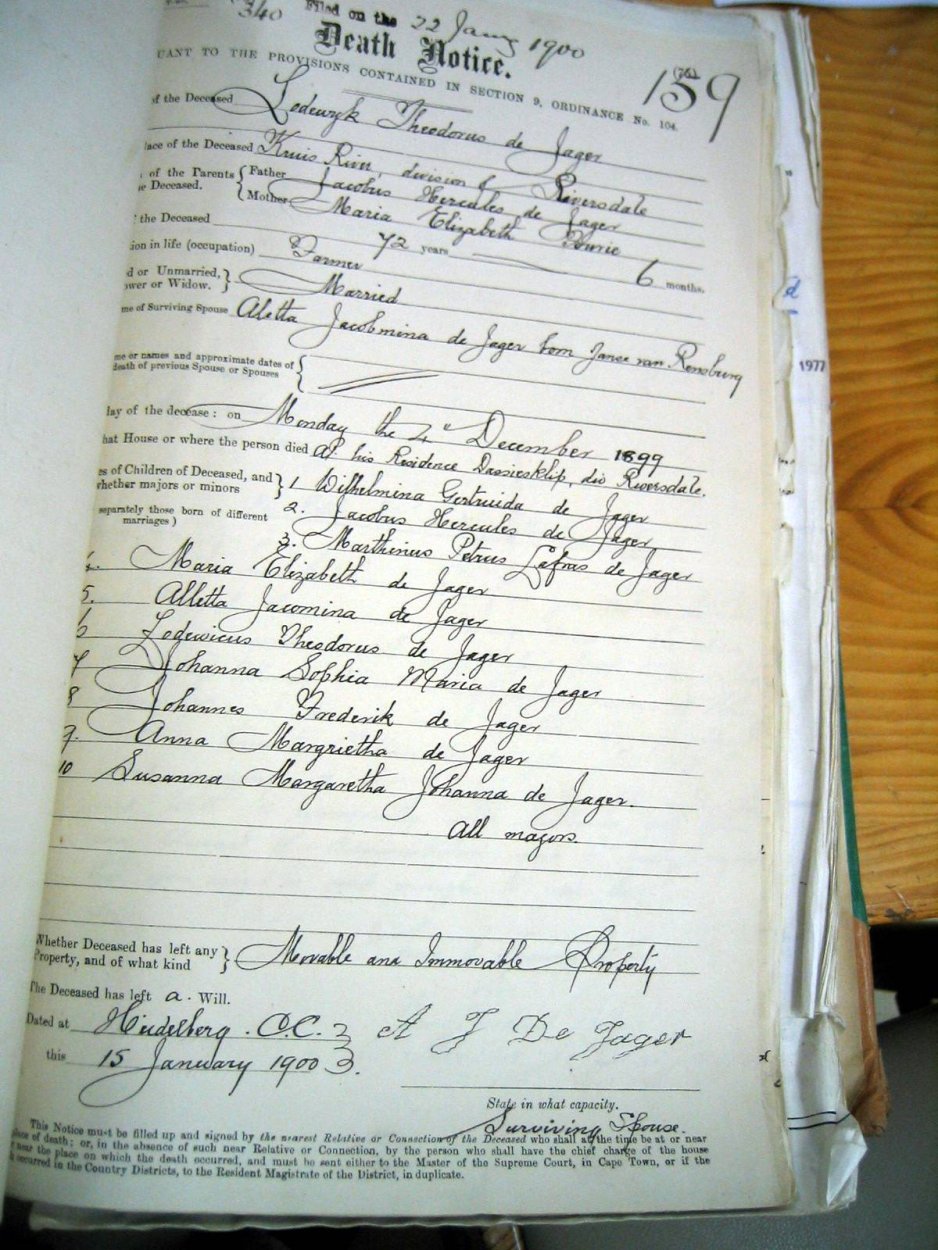 340 Filed on the 22 Jany 1900
Death Notice.
UANT TO THE PROVISIONS CONTAINED IN SECTION 9, ORDINANCE No. 104.
159
of the Deceased Lodewyk Theodorus de Jager
lace of the Deceased Kruis River, division of Riversdale
of the Parents { Father Jacobus Hercules de Jager
e Deceased. { Mother Maria Elizabeth Fourie
the Deceased 72 years 6 months.
ion in life (occupation) Farmer
d or Unmarried, }
ower or Widow. } Married
me of Surviving Spouse Aletta Jacobmina de Jager born Janse van Rensburg
me or names and approximate dates of {
death of previous Spouse or Spouses
day of the decease : on Monday the 4th December 1899
hat House or where the person died At his Residence Dassiesklip, div Riversdale.
es of Children of Deceased, and } 1 Wilhelmina Gertruida de Jager
whether majors or minors
separately those born of different 2. Jacobus Hercules de Jager
marriages )
3. Marthinus Petrus Lafras de Jager
4. Maria Elizabeth de Jager
5. Alletta Jacomina de Jager
6 Lodewicus Theodorus de Jager
7 Johanna Sophia Maria de Jager
8 Johannes Frederik de Jager
9. Anna Margrietha de Jager
10 Susanna Margaretha Johanna de Jager.
All majors.
Whether Deceased has left any }
Property, and of what kind } Movable and Immovable Property
The Deceased has left a . Will.
Dated at Heidelberg . C.C. A J De Jager
this 15 January 1900
State in what capacity.
Surviving Spouse.
This Notice must be filled up and signed by the nearest Relative or Connection of the Deceased who shall at the time be at or near
place of death; or, in the absence of such near Relative or Connection, by the person who shall have the chief charge of the house
near the place on which the death occurred, and must be sent either to the Master of the Supreme Court, in Cape Town, or if the
occurred in the Country Districts, to the Resident Magistrate of the District, in duplicate.
1977